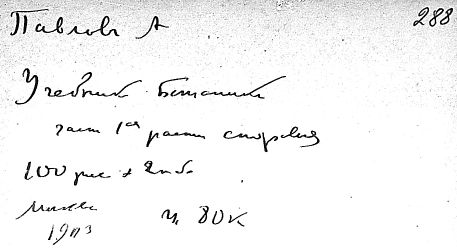 Павловъ А 288
Учебник ботаники
част 1ая раст споровыя
100 рис +
Москва
1903 ц 80 к